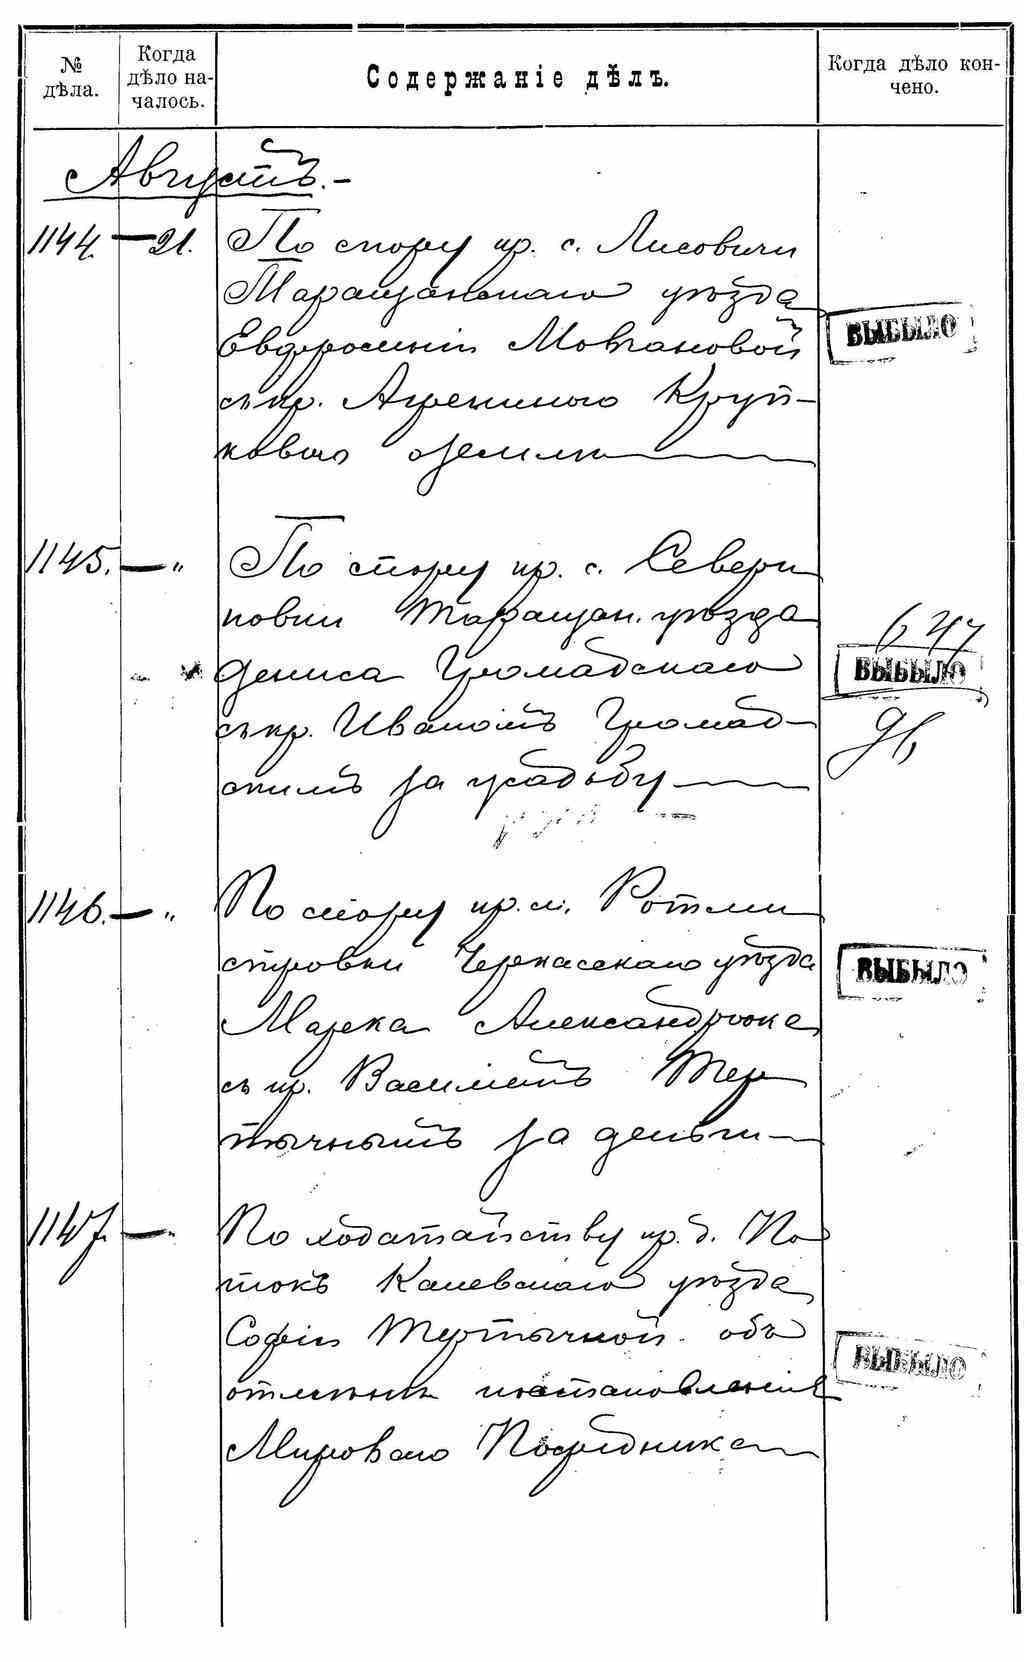 № дѣла.
Когда дѣло началось.
Содержаніе дѣлъ.
Когда дѣло кончено.
Августъ.-
1144. — 21. По спору кр. с. Лисовичи
Таращанскаго уѣзда
Евфросиніи Мовчановой
съ кр. Агрениного Круп-
ковым о землѣ
ВЫБЫЛО
1145. — „ По спору кр. с. Севери
новки Таращан. уѣзда
Дениса Громадскаго
съ кр. Иваномъ Громад-
скимъ за усадьбу
647
ВЫБЫЛО
1146. — „ По спору кр. м. Ротми
стровки Черкасскаго уѣзда
Марка Александрюка
съ кр. Василіемъ Тер
тычнымъ за деньги
ВЫБЫЛО
1147. — „ По ходатайству кр. д. По
токъ Каневскаго уѣзда
Софіи Тертычной объ
отмѣнѣ постановленія
Мирового Посредника
ВЫБЫЛО